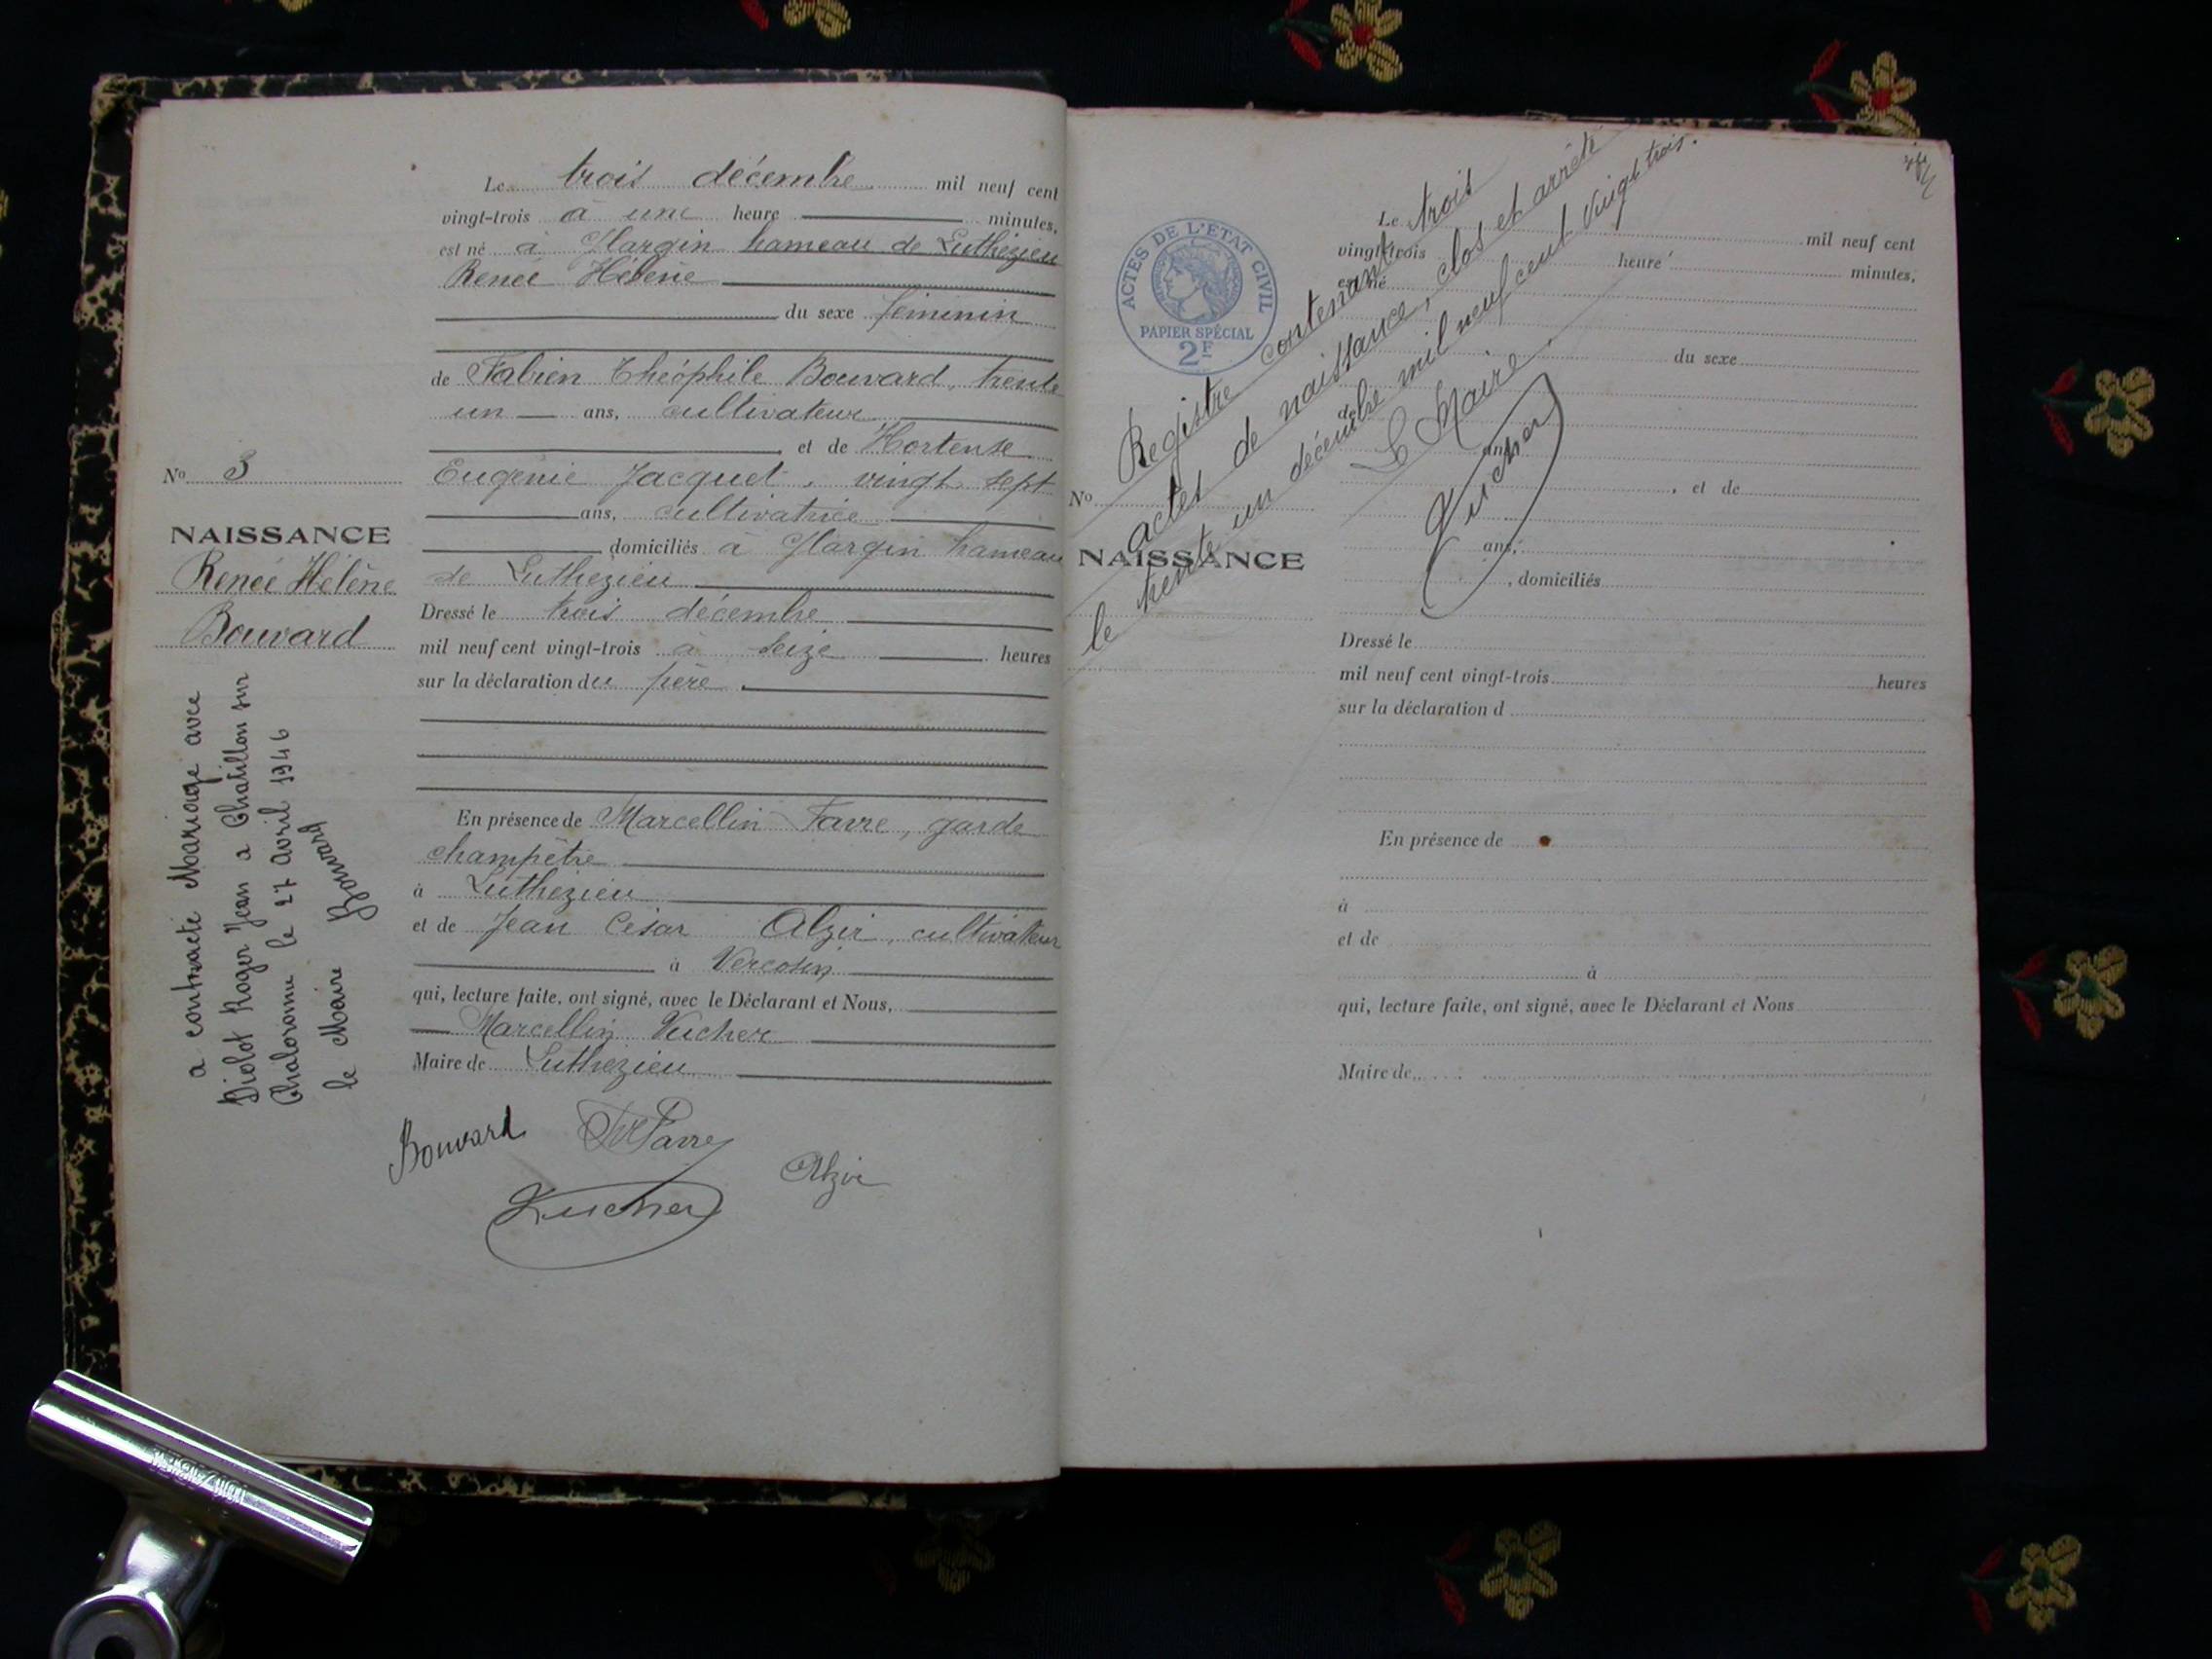 Le trois décembre mil neuf cent
vingt-trois à une heure minutes,
est né à Hargin hameau de Luthézieu
Renée Hélène
du sexe féminin
de Fabien Théophile Bouvard, trente
un ans, cultivateur
et de Hortense
Eugénie Jacquet, vingt sept
ans, cultivatrice
domiciliés à Hargin hameau
de Luthezieu
Dressé le trois décembre
mil neuf cent vingt-trois à seize heures
sur la déclaration du père.
En présence de Marcellin Favre, garde
champêtre
à Luthézieu
et de Jean César Alzir, cultivateur
à Vercosin
qui, lecture faite, ont signé, avec le Déclarant et Nous,
Marcellin Vucher
Maire de Luthezieu
Bouvard Favre
Alzir
Vucher
No 3
NAISSANCE
Renée Hélène
Bouvard
a contracté Mariage avec
Diolot Roger Jean a Chatillon sur
Chalaronne le 27 avril 1946
le Maire Bouvard
ACTES DE L'ÉTAT CIVIL
PAPIER SPÉCIAL
2F
Registre contenant trois
actes de naissance, clos et arrêté
le trente un décembre mil neuf cent vingt trois.
Le Maire.
Vucher
Le mil neuf cent
vingt-trois heure minutes,
est né
du sexe
de
ans,
, et de
No
NAISSANCE
ans,
, domiciliés
Dressé le
mil neuf cent vingt-trois heures
sur la déclaration d
En présence de
à
et de
à
qui, lecture faite, ont signé, avec le Déclarant et Nous
Maire de